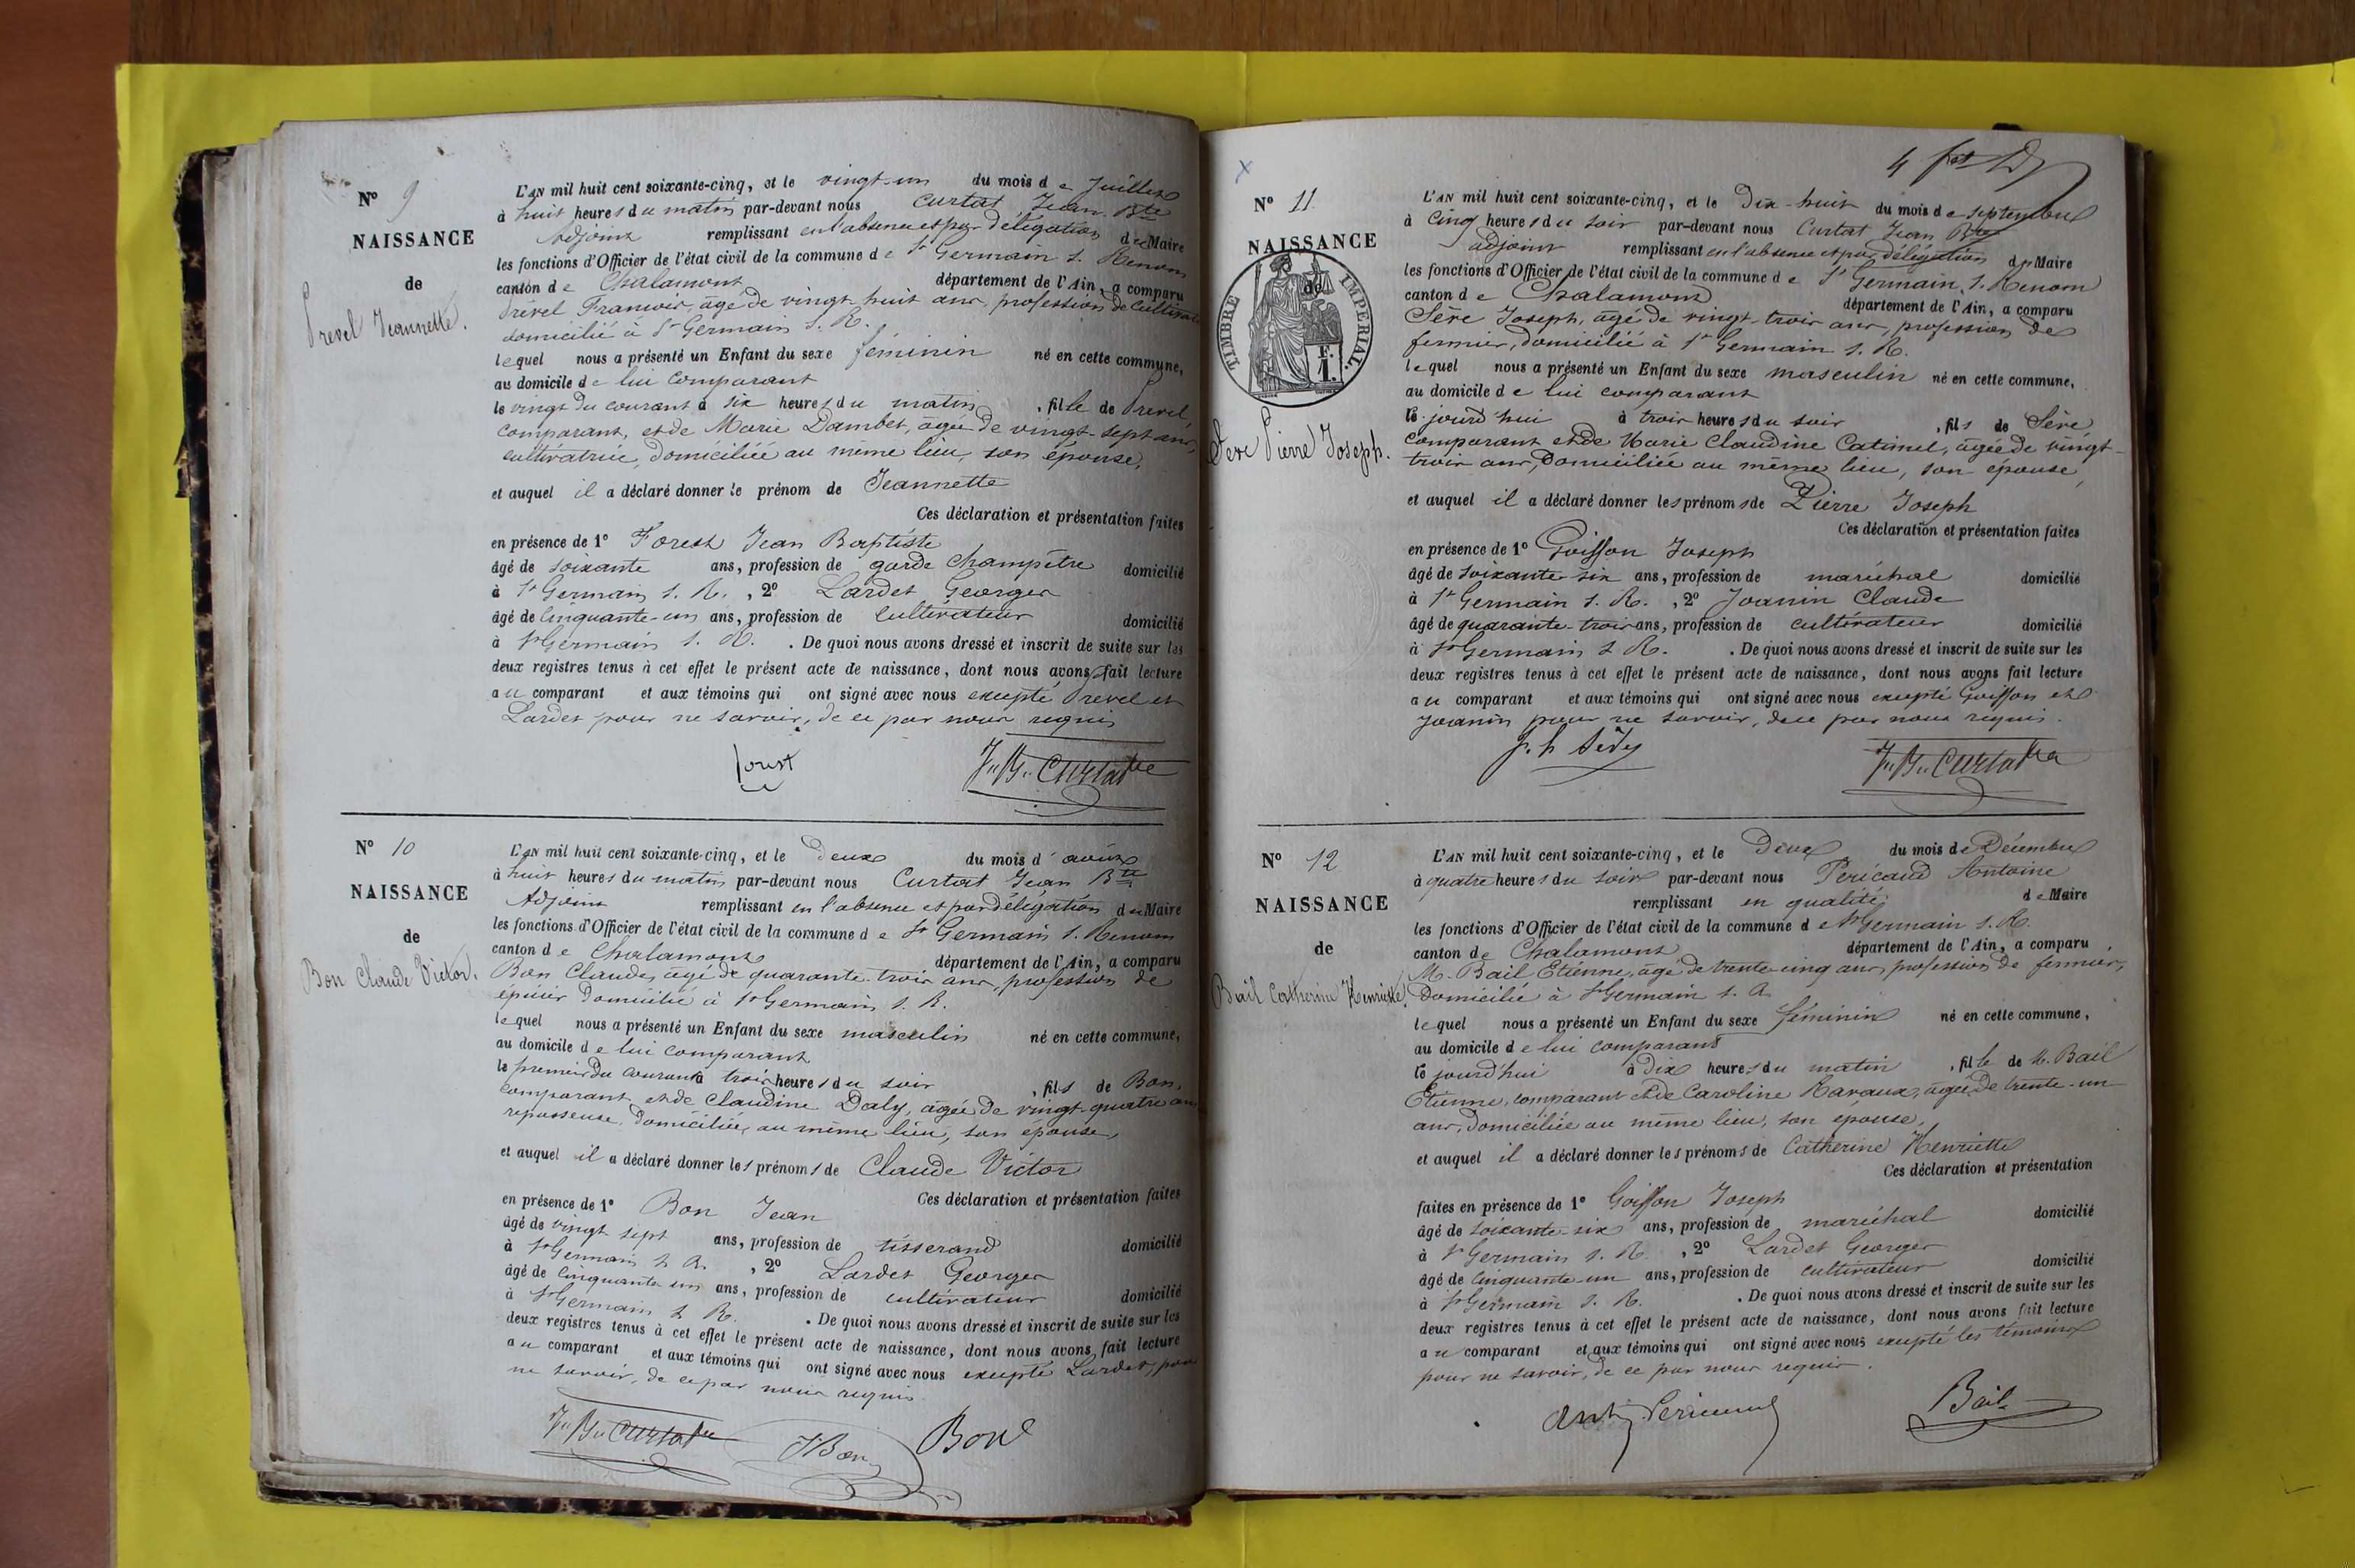 N° 9
NAISSANCE
de
Prevel Jeannette.
L'AN mil huit cent soixante-cinq, et le vingt-un du mois de Juillet
à huit heures du matin par-devant nous Curtat Jean Bte
Adjoint remplissant en l'absence et par délégation du Maire
les fonctions d'Officier de l'état civil de la commune de St Germain s. Renom
canton de Chalamont département de l'Ain, a comparu
Prevel Francois, âgé de vingt-huit ans, profession de cultivateur
domicilié à St Germain s. R.
lequel nous a présenté un Enfant du sexe féminin né en cette commune,
au domicile de lui comparant
le vingt du courant à six heures du matin, fille de Prevel
comparant, et de Marie Dambet, âgée de vingt-sept ans,
cultivatrice, domiciliée au même lieu, son épouse,
et auquel il a déclaré donner le prénom de Jeannette
Ces déclaration et présentation faites
en présence de 1° Forest Jean Baptiste
âgé de soixante ans, profession de garde champêtre domicilié
à St Germain s. R., 2° Lardet Georges
âgé de cinquante-un ans, profession de cultivateur domicilié
à St Germain s. R. . De quoi nous avons dressé et inscrit de suite sur les
deux registres tenus à cet effet le présent acte de naissance, dont nous avons fait lecture
au comparant et aux témoins qui ont signé avec nous excepté Prevel et
Lardet pour ne savoir, de ce par nous requis
forest J. B. Curtat
N° 10
NAISSANCE
de
Bon Claude Victor.
L'AN mil huit cent soixante-cinq, et le deux du mois d'août
à huit heures du matin par-devant nous Curtat Jean Bte
Adjoint remplissant en l'absence et par délégation du Maire
les fonctions d'Officier de l'état civil de la commune de St Germain s. Renom
canton de Chalamont département de l'Ain, a comparu
Bon Claude, âgé de quarante-trois ans, profession de
épicier domicilié à St Germain s. R.
lequel nous a présenté un Enfant du sexe masculin né en cette commune,
au domicile de lui comparant
le premier du courant à trois heures du soir, fils de Bon,
comparant et de Claudine Daly, âgée de vingt-quatre ans
repasseuse, domiciliée au même lieu, son épouse,
et auquel il a déclaré donner les prénoms de Claude Victor
Ces déclaration et présentation faites
en présence de 1° Bon Jean
âgé de vingt sept ans, profession de tisserand domicilié
à St Germain s. R. , 2° Lardet Georges
âgé de cinquante un ans, profession de cultivateur domicilié
à St Germain s. R. . De quoi nous avons dressé et inscrit de suite sur les
deux registres tenus à cet effet le présent acte de naissance, dont nous avons fait lecture
au comparant et aux témoins qui ont signé avec nous excepté Lardet, pour
ne savoir, de ce par nous requis.
J. B. Curtat J Bon Bon
4
N° 11
NAISSANCE
de
TIMBRE IMPÉRIAL.
F.
1.
Sère Pierre Joseph.
L'AN mil huit cent soixante-cinq, et le Dix-huit du mois de septembre
à Cinq heures du soir par-devant nous Curtat Jean Bte
adjoint remplissant en l'absence et par délégation du Maire
les fonctions d'Officier de l'état civil de la commune de St Germain s. Renom
canton de Chalamont département de l'Ain, a comparu
Sère Joseph, âgé de vingt-trois ans, profession de
fermier, domicilié à St Germain s. R.
lequel nous a présenté un Enfant du sexe masculin né en cette commune,
au domicile de lui comparant
le jourd'hui à trois heures du soir, fils de Sère
comparant et de Marie Claudine Catimel, âgée de vingt-
trois ans, domiciliée au même lieu, son épouse,
et auquel il a déclaré donner les prénoms de Pierre Joseph
Ces déclaration et présentation faites
en présence de 1° Goiffon Joseph
âgé de soixante-six ans, profession de maréchal domicilié
à St Germain s. R. , 2° Joanin Claude
âgé de quarante-trois ans, profession de cultivateur domicilié
à St Germain s R. . De quoi nous avons dressé et inscrit de suite sur les
deux registres tenus à cet effet le présent acte de naissance, dont nous avons fait lecture
au comparant et aux témoins qui ont signé avec nous excepté Goiffon et
Joanin pour ne savoir, de ce par nous requis.
J. B. Curtat
N° 12
NAISSANCE
de
Bail Catherine Henriette.
L'AN mil huit cent soixante-cinq, et le Deux du mois de Décembre
à quatre heures du soir par-devant nous Péricaud Antoine
remplissant en qualité de Maire
les fonctions d'Officier de l'état civil de la commune de St Germain s. R.
canton de Chalamont département de l'Ain, a comparu
M. Bail Etienne, âgé de trente-cinq ans, profession de fermier,
Domicilié à St Germain s. R.
lequel nous a présenté un Enfant du sexe féminin né en cette commune,
au domicile de lui comparant
le jourd'hui à Dix heures du matin, fille de M. Bail
Etienne, comparant et de Caroline Ravaux, âgée de trente-un
ans, domiciliée au même lieu, son épouse,
et auquel il a déclaré donner les prénoms de Catherine Henriette
Ces déclaration et présentation
faites en présence de 1° Goiffon Joseph
âgé de soixante-six ans, profession de maréchal domicilié
à St Germain s. R. , 2° Lardet Georges
âgé de cinquante-un ans, profession de cultivateur domicilié
à St Germain s. R. . De quoi nous avons dressé et inscrit de suite sur les
deux registres tenus à cet effet le présent acte de naissance, dont nous avons fait lecture
au comparant et aux témoins qui ont signé avec nous excepté les témoins
pour ne savoir, de ce par nous requis.
Ant. Péricaud Bail